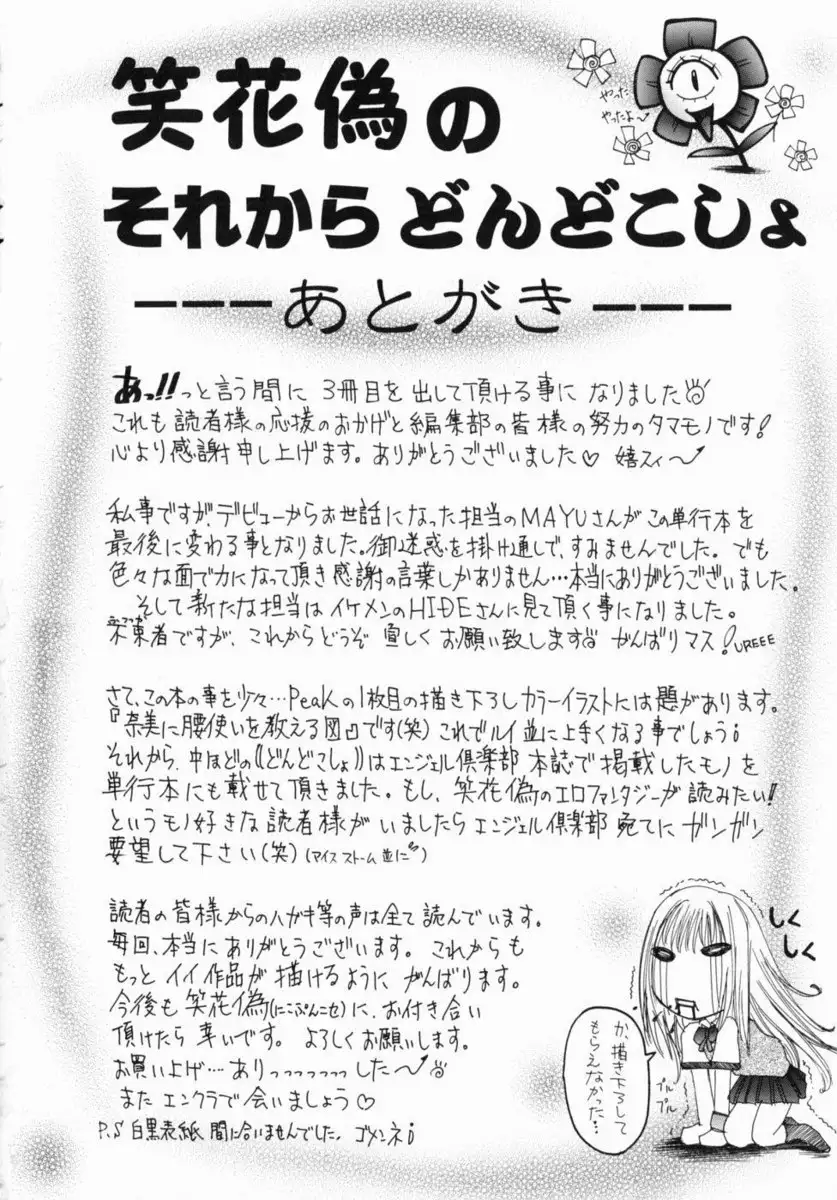 笑花偽の
それから どんどこしょ
やった
やったよ〜
---あとがき---
あっ!!っと言う間に 3冊目を 出して頂ける事に なりました
これも 読者様の応援のおかげと編集部の皆様の努力のタマモノです!
心より感謝申し上げます。ありがとうございました♡ 嬉スィ〜
私事ですが、デビューからお世話になった担当のMAYUさんが この単行本を
最後に変わる事となりました。御迷惑を掛け通しで、すみませんでした。でも
色々な面で力になって頂き感謝の言葉しかありません…本当にありがとうございました。
そして新たな担当は イケメンのHIDEさんに見て頂く事になりました。
不束者ですが、これからどうぞ 宜しくお願い致します がんばりマス! UREEE
さて、この本の事を少々…Peakの1枚目の描き下ろしカラーイラストには題があります。
『奈美に腰使いを教える図』です(笑) これでルイ並に上手くなる事でしょう!
それから、中ほどの《どんどこしょ》はエンジェル倶楽部 本誌で掲載したモノを
単行本にも載せて頂きました。もし、笑花偽のエロファンタジーが読みたい!!
というモノ好きな読者様が いましたら エンジェル倶楽部 宛てに ガンガン
要望して下さい(笑) (アイス ストーム 並に)
読者の皆様からのハガキ等の声は全て読んでいます。
毎回、本当に ありがとうございます。これからも
もっと イイ作品が 描けるように がんばります。
今後も 笑花偽(にこぷんこせ)に、お付き合い
頂けたら 幸いです。よろしくお願いします。
お買い上げ…ありっっっっっっした〜
また エンクラで会いましょう♡
P.S 白黒表紙 間に合いませんでした。ゴメンネ!
しく
しく
か、描き下ろして
もらえなかった…
プル
プル